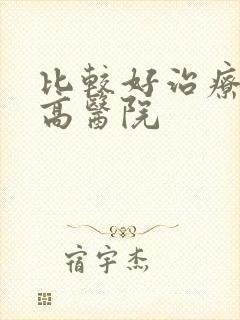 比較好治療
高醫院
宿宇杰